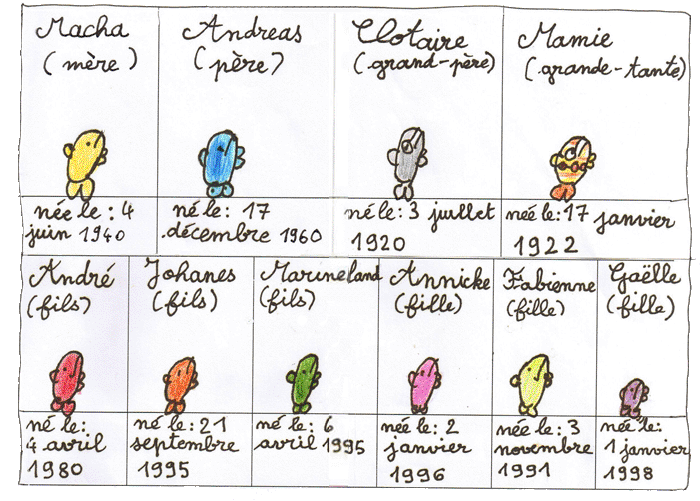 Macha
(mère)
née le : 4
juin 1940
Andreas
(père)
né le: 17
décembre 1960
Clotaire
(grand-père)
né le: 3 juillet
1920
Mamie
(grande-tante)
née le: 17 janvier
1922
André
(fils)
né le:
4 avril
1980
Johanes
(fils)
né le: 21
septembre
1995
Marineland
(fils)
né le: 6
avril 1995
Annicke
(fille)
née le: 2
janvier
1996
Fabienne
(fille)
née le: 3
novembre
1991
Gaëlle
(fille)
née le:
1 janvier
1998